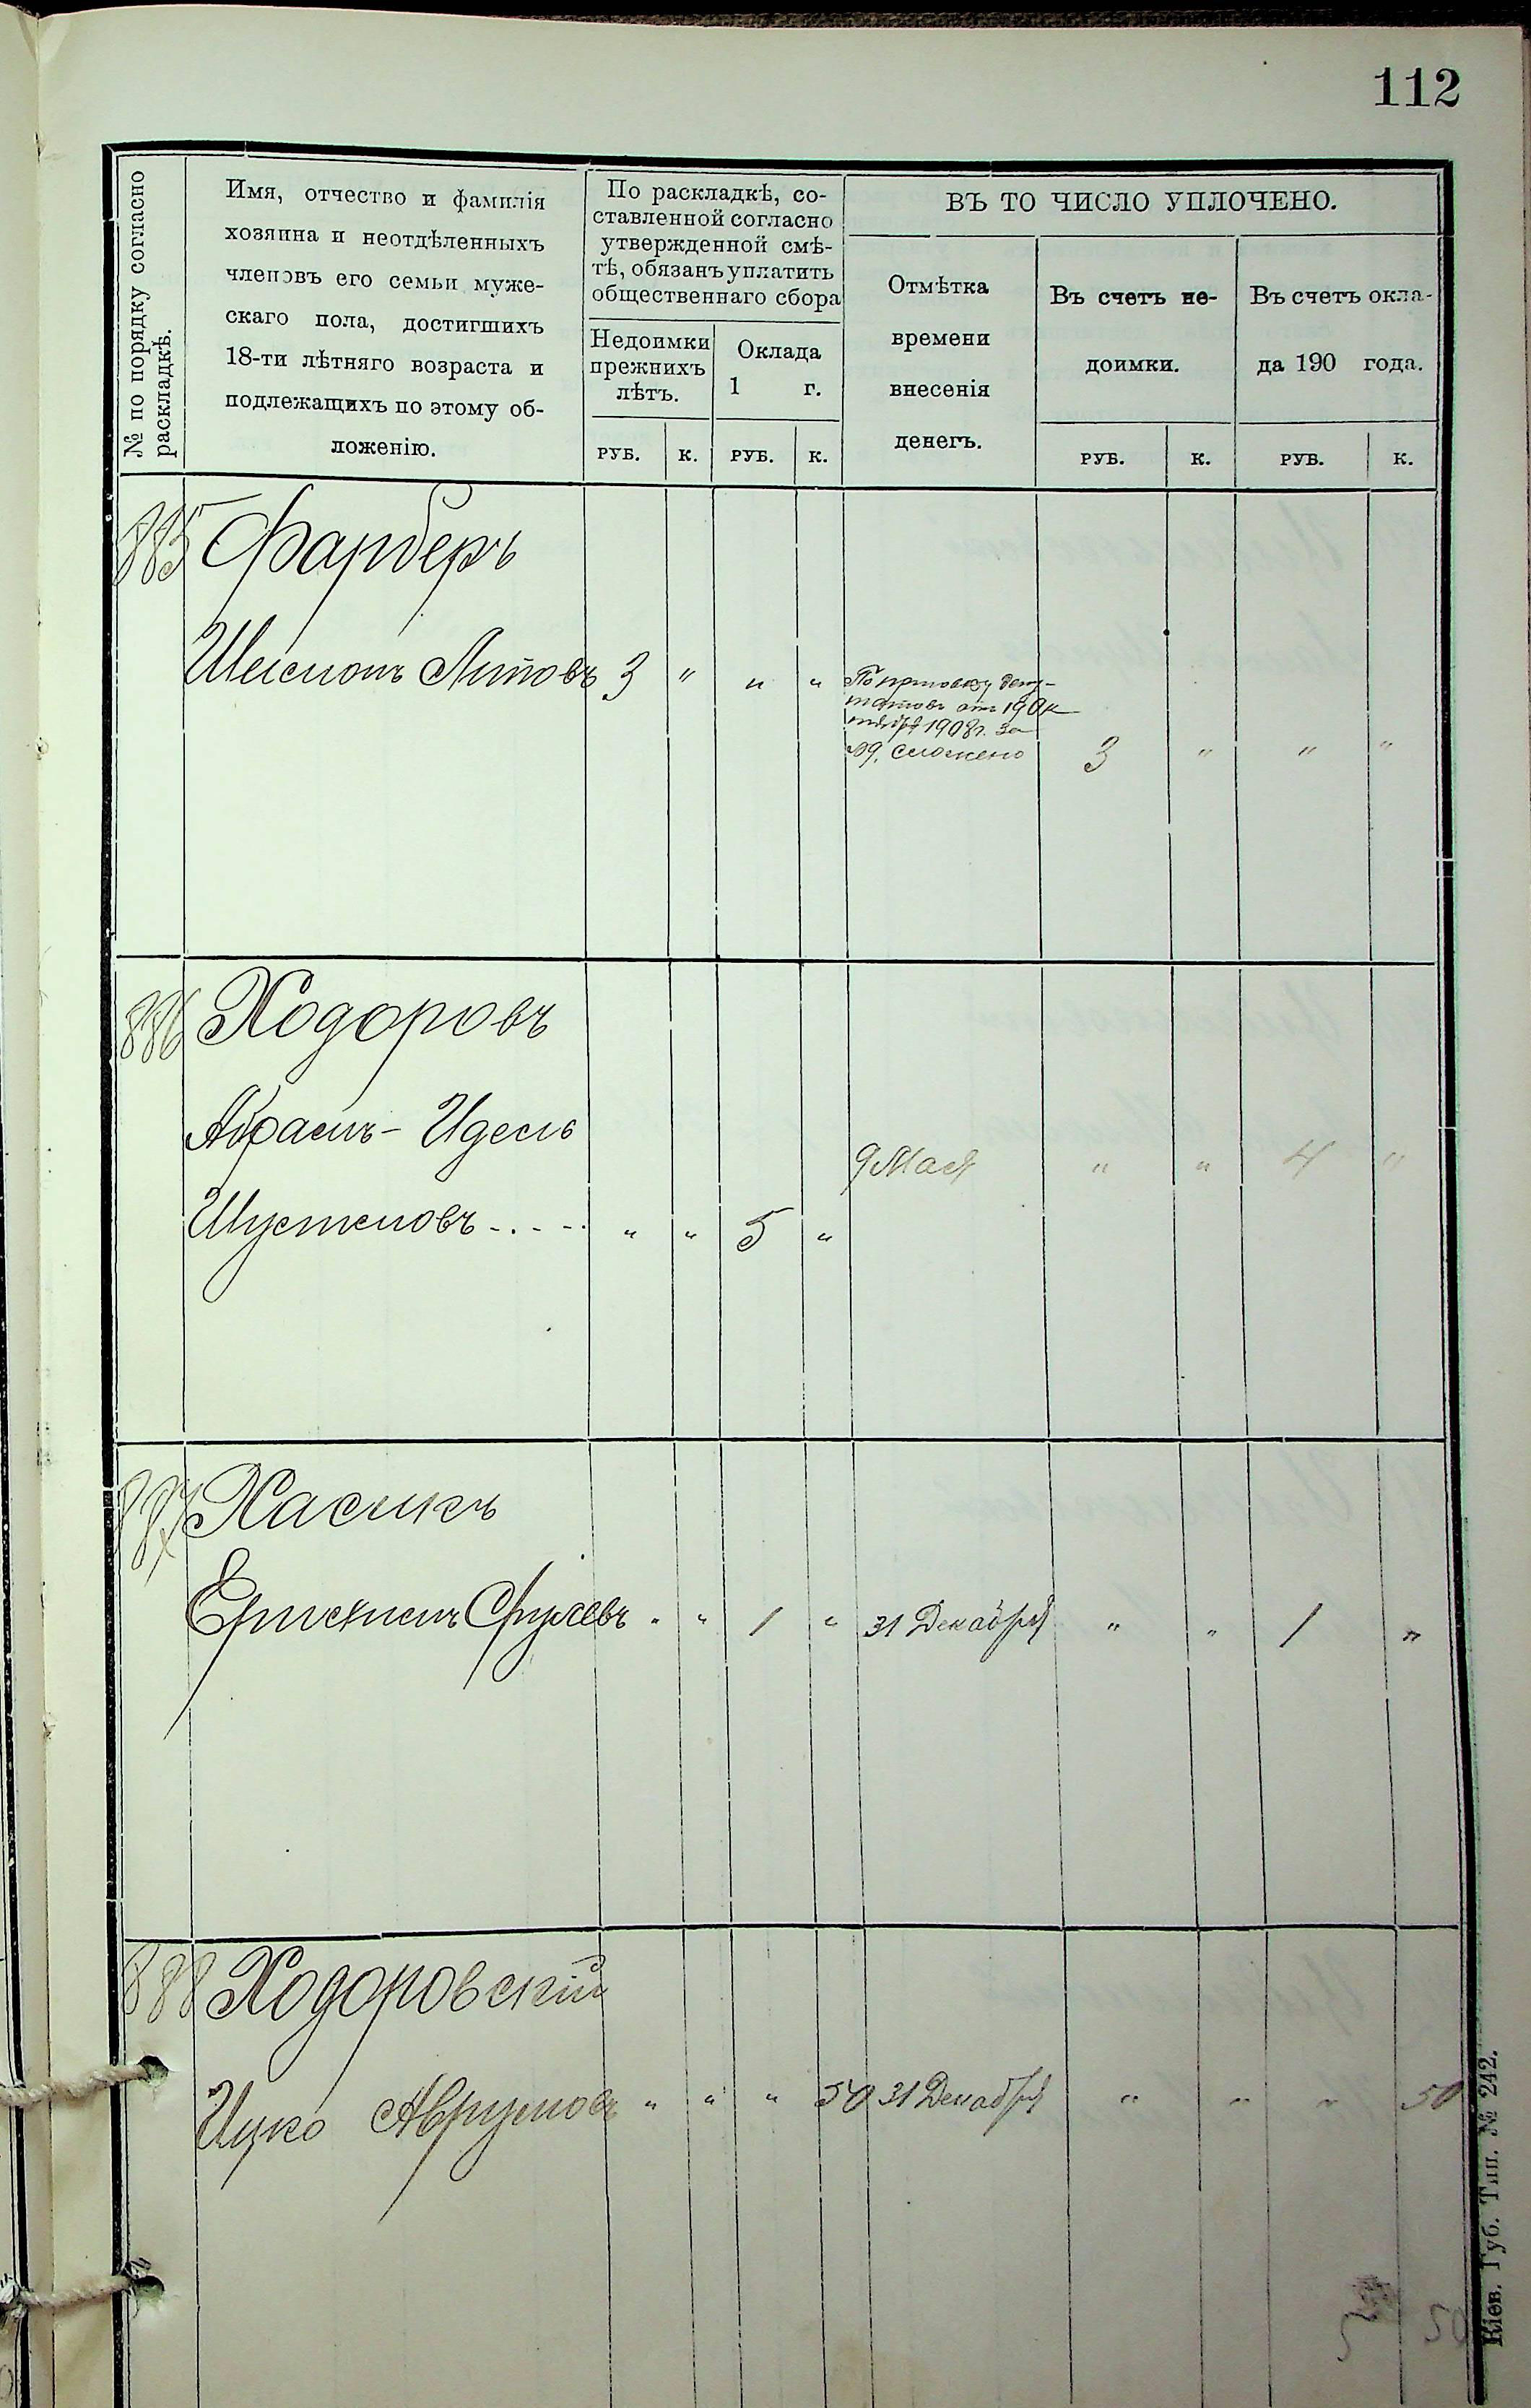 112
№ по порядку согласно
раскладкѣ.
Имя, отчество и фамилія
хозяина и неотдѣленныхъ
членовъ его семьи муже-
скаго пола, достигшихъ
18-ти лѣтняго возраста и
подлежащихъ по этому об-
ложенію.
По раскладкѣ, со-
ставленной согласно
утвержденной смѣ-
тѣ, обязанъ уплатить
общественнаго сбора
Недоимки
прежнихъ
лѣтъ.
Оклада
1 г.
РУБ. К. РУБ. К.
ВЪ ТО ЧИСЛО УПЛОЧЕНО.
Отмѣтка
времени
внесенія
денегъ.
Въ счетъ не-
доимки.
Въ счетъ окла-
да 190 года.
РУБ. К. РУБ. К.
885 Фарберъ
3 " " "
от 19 Ок-
тября 1908 г. за
сложено 3 " " "
886 Ходоровъ
Абрамъ-
9 Мая " " 4 "
" " 5 "
887 Хасикъ
Срулевъ " " 1 " 31 Декабря " " 1 "
888 Ходоровскій
Ицко Аврумовъ " " " 50 31 Декабря " " " 50
5 50
Кіев. Губ. Тип. № 242.